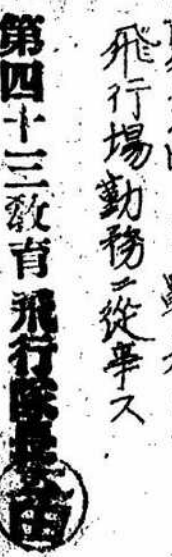 飛行場勤務ニ從事ス
第四十三教育飛行隊長